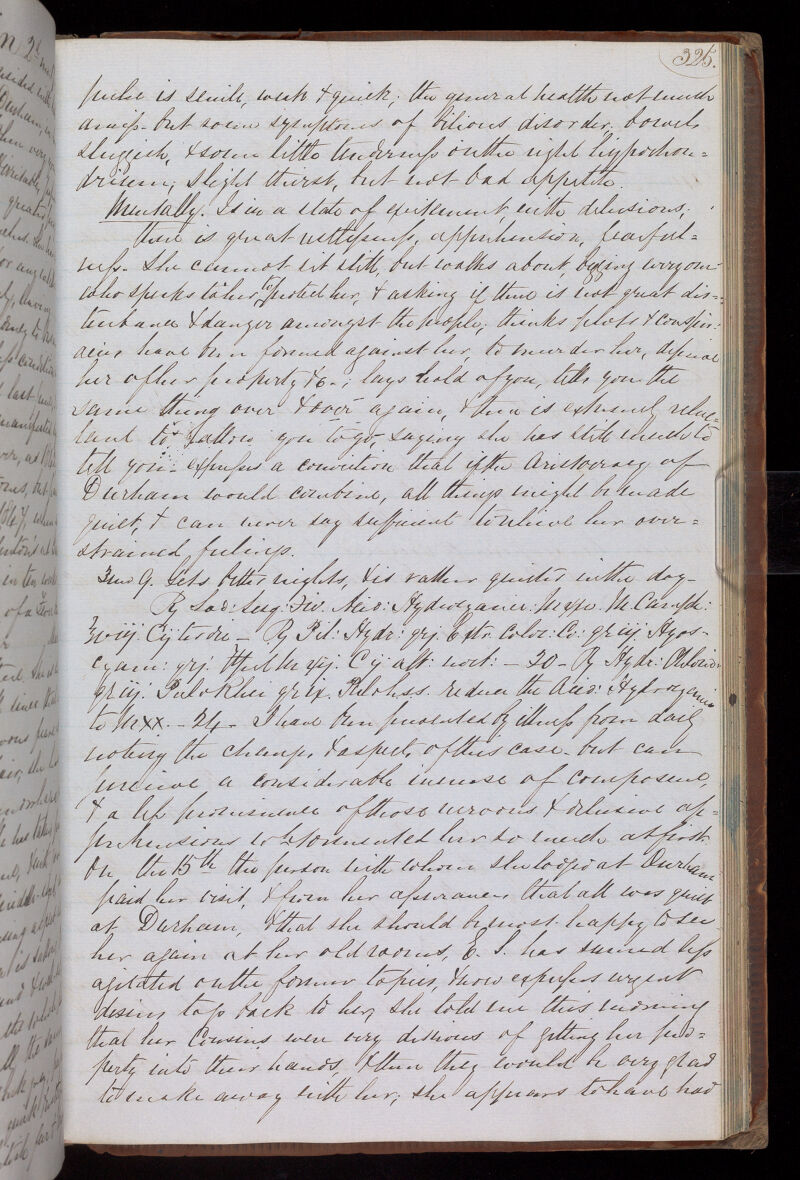 325.
pulse is senile, weak & quick; the general health not much
amiss. but some symptoms of bilious disorder, bowels
sluggish, & some little tenderness on the right hypochon=
drium; slight thirst, but not bad appetite.
Mentally. Is in a state of excitement, with delusions;
there is great restlessness, apprehension, fearful=
ness. She cannot sit still, but walks about, begging everyone
who speaks to her, to protect her, & asking if there is not great dis=
turbance & danger amongst the people; thinks plots & conspir=
acies have been formed against her, to murder her, deprive
her of her property &c.; lays hold of you, tells you the
same thing over & over again, & then is extremely reluc=
tant to allow you to go, saying she has still much to
tell you. expresses a conviction that if the Aristocracy of
Durham would combine, all things might be made
quiet, & can never say sufficient to relieve her over=
strained feelings.
June 9. Gets better nights, & is rather quieter in the day.
Cij ter die — ℞ Pil: Hydr: grj Extr. Coloc: Co: gr iij. Hyos=
cyam: grj. Cij alt: noct: — 20 — ℞ Hydr: Chlorid:
gr iij. Pulv Rhei gr ix. reduce the Acid: Hydrocyanic
to ♏xx. — 24. I have been prevented by illness from daily
noting the changes & aspects of this case. but can
perceive a considerable increase of composure,
& a less prominence of those nervous & delusive ap=
prehensions wh tormented her so much at first.
On the 15th the person with whom she lodged at Durham
paid her visit, & from her assurances that all was quiet
at Durham, & that she should be most happy to see
her again at her old rooms, E. S. has seemed less
agitated on the former topics, & now expresses urgent
desires to go back to her, she told me this morning
that her Cousins were very desirous of getting her pro=
perty into their hands, & then they would be very glad
to make away with her; she appears to have had